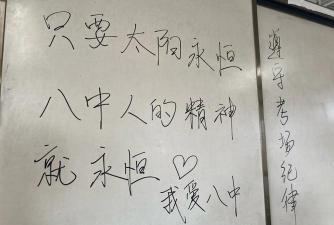 只要太阳永恒
八中人的精神
就永恒♡
我爱八中
遵守考场纪律